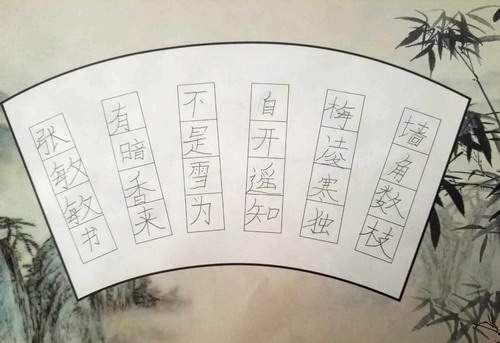 墙角数枝
梅凌寒独
自开遥知
不是雪为
有暗香来
张敏敏书